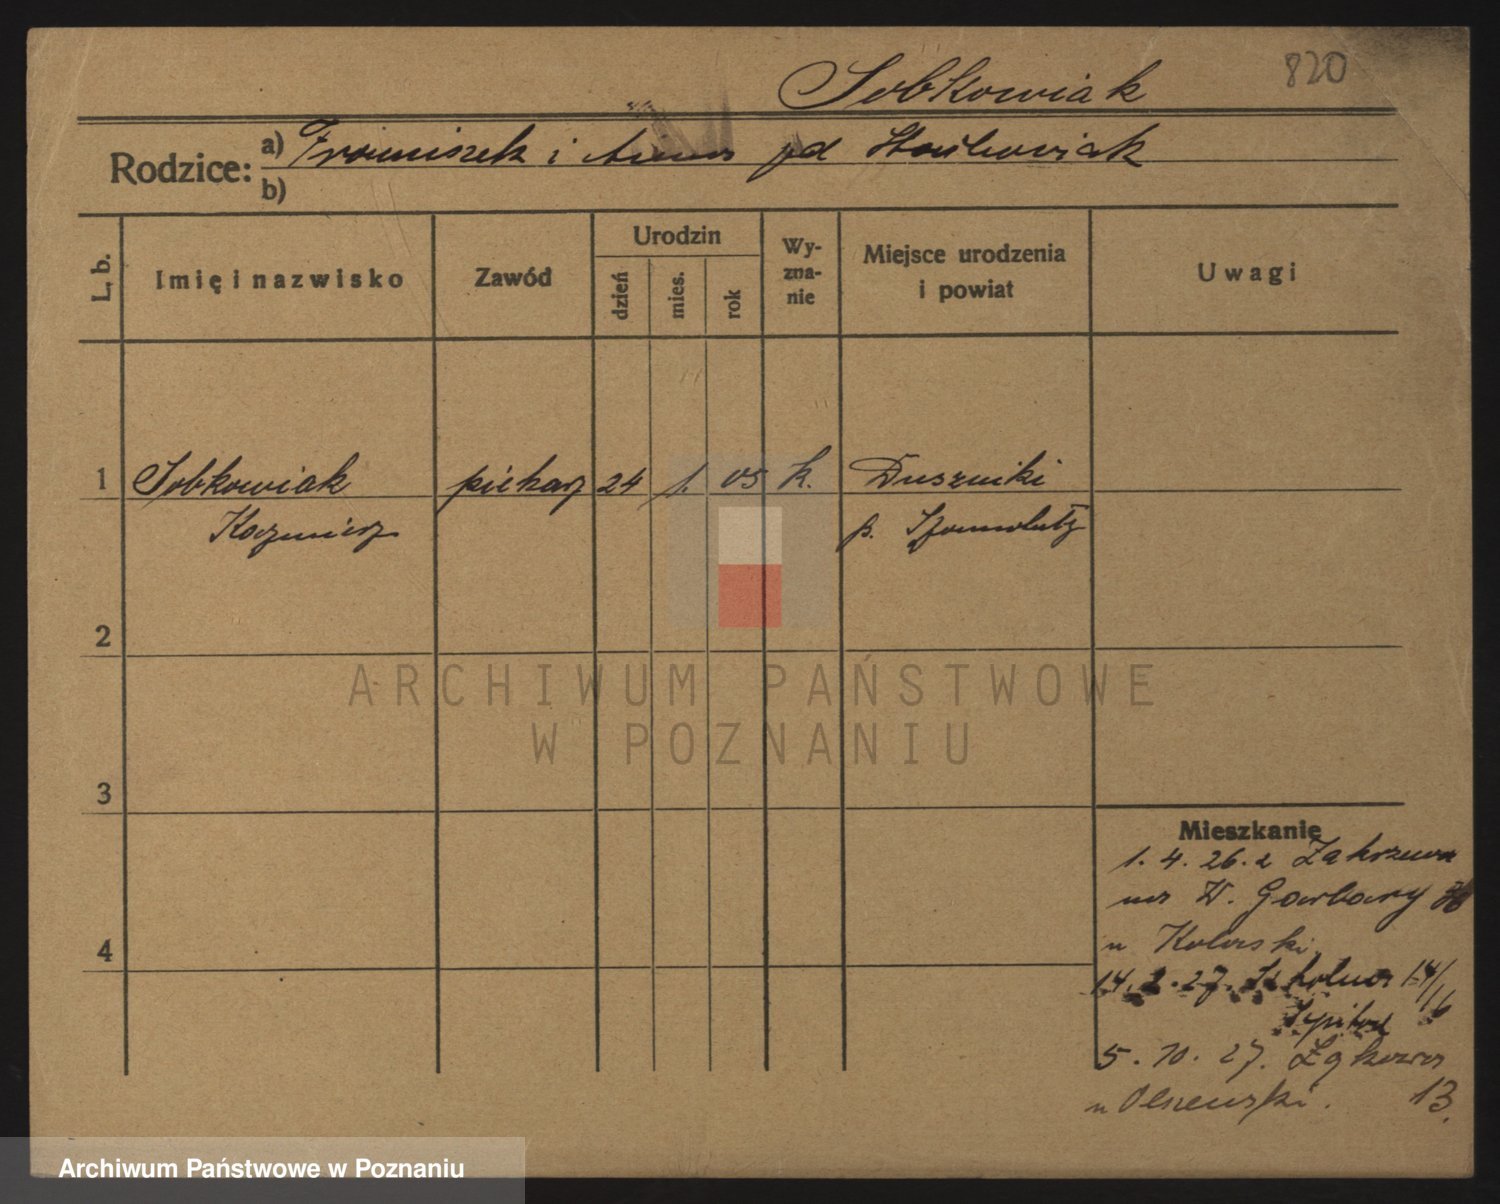 820
Sobkowiak
Rodzice: a) Franciszek i Anna pd
b)
L. b.
Imię i nazwisko
Zawód
Urodzin
dzień
mies.
rok
Wy-
zna-
nie
Miejsce urodzenia
i powiat
Uwagi
1 Sobkowiak piekarz 24 1. 05 k. Duszniki
Kazmierz p. Szamotuły
2
3
4
Mieszkanie
1. 4. 26. z Zakrzewa
na W. Garbary
u Kolaski
14. 2. 27. Szkolna 14/16
Szpital
5. 10. 27. Łąkowa
u Olszewski. 13.
ARCHIWUM PAŃSTWOWE
W POZNANIU
Archiwum Państwowe w Poznaniu